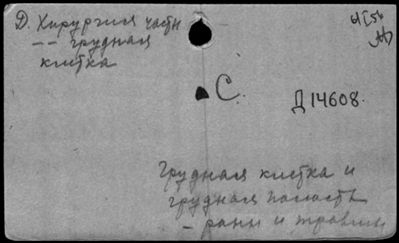 Д. Хирургия частн
-- грудная
клетка
С.
Д 14608.
Грудная клетка и
грудная полость
- раны и травмы